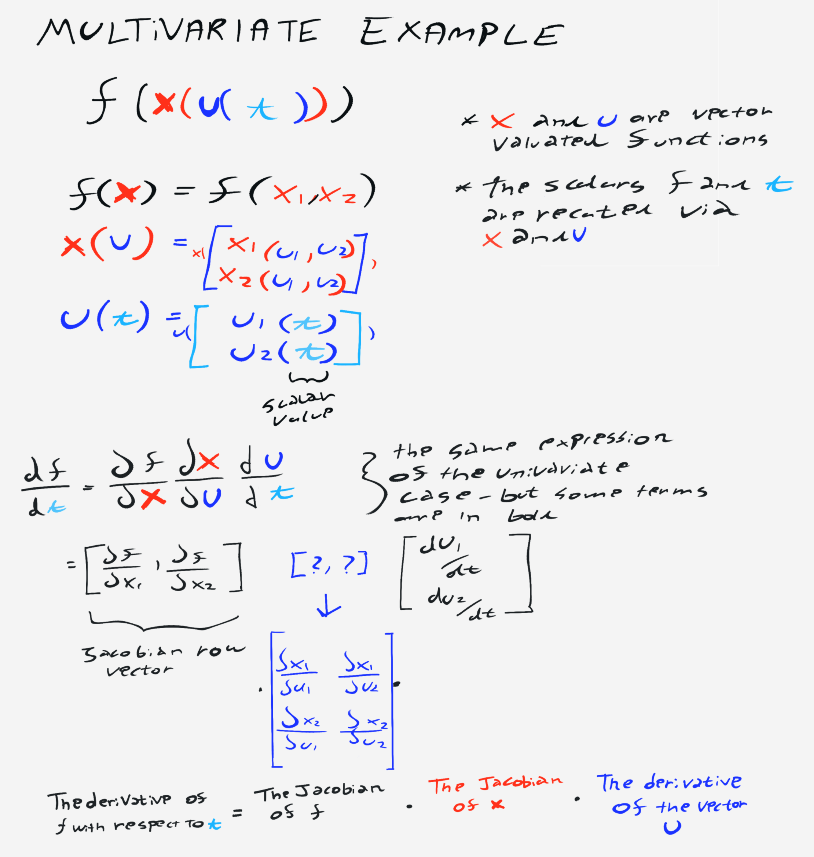 MULTIVARIATE EXAMPLE
f (x(u( t )))
* x and u are vector
valuated functions
f(x) = f( x₁, x₂ )
* the scalars f and t
are recated via
x and u
x(u) = x( [ x₁ (u₁, u₂)
x₂ (u₁, u₂) ] )
u(t) = u( [ u₁ (t)
u₂ (t) ] )
scalar
value
df/dt = ∂f/∂x ∂x/∂u du/dt
the same expression
of the univariate
case - but some terms
are in bold
= [ ∂f/∂x₁ , ∂f/∂x₂ ] [?, ?] [ du₁/dt
du₂/dt ]
Jacobian row
vector
· [ ∂x₁/∂u₁ ∂x₁/∂u₂
∂x₂/∂u₁ ∂x₂/∂u₂ ] ·
The derivative of
f with respect to t
=
The Jacobian
of f
·
The Jacobian
of x
·
The derivative
of the vector
u